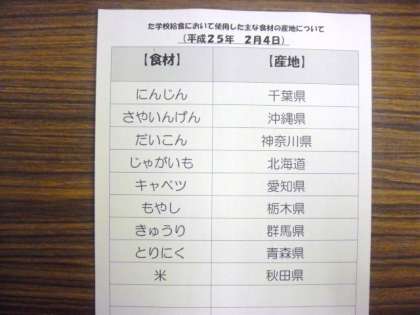 た学校給食において使用した主な食材の産地について
（平成25年 2月4日）
【食材】 【産地】
にんじん 千葉県
さやいんげん 沖縄県
だいこん 神奈川県
じゃがいも 北海道
キャベツ 愛知県
もやし 栃木県
きゅうり 群馬県
とりにく 青森県
米 秋田県